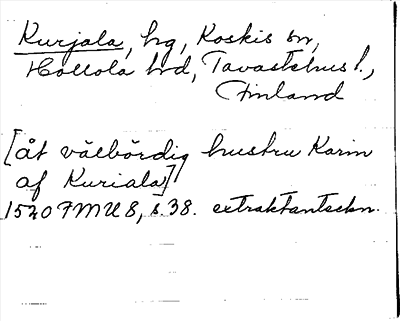 Kurjala, hg, Koskis sn,
Hollola hrd, Tavastehus l.,
Finland
[åt välbördig hustru Karin
af Kuriala]
1520 FMU 8, s. 38. extraktanteckn.